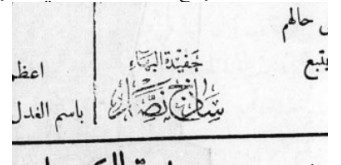 ى حالهم
يتبع
حفيدة البهاء
ساذج نصار
اعظم
باسم العدل